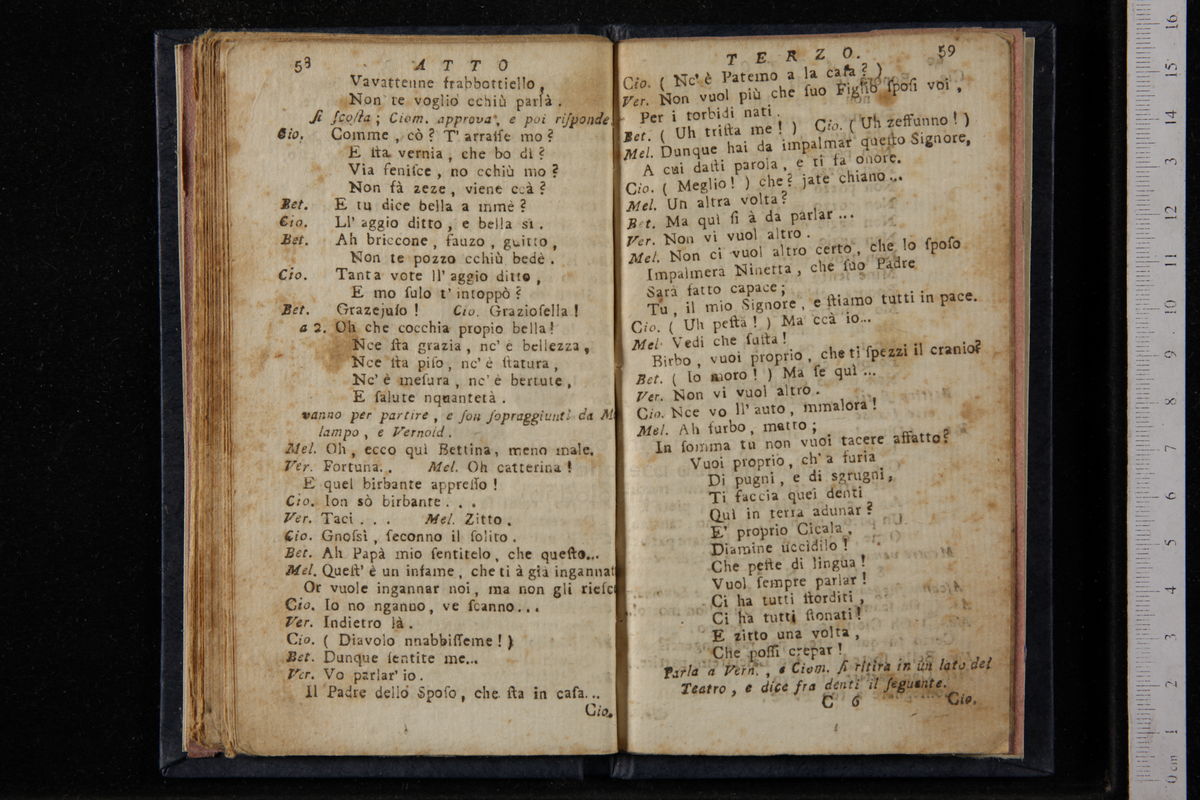 58 ATTO
Vavattenne frabbottiello,
Non te voglio cchiù parlà.
ſi ſcoſta; Ciom. approva, e poi riſponde.
Cio. Comme, cò? T'arraſſe mo?
E ſta vernia, che bo dì?
Via feniſce, no cchiù mo?
Non fà zeze, viene ccà?
Bet. E tu dice bella a mmè?
Cio. Ll' aggio ditto, e bella sì.
Bet. Ah briccone, fauzo, guitto,
Non te pozzo cchiù bedè.
Cio. Tanta vote ll' aggio ditto,
E mo ſulo t' intoppò?
Bet. Grazejuſo! Cio. Grazioſella!
a 2. Oh che cocchia propio bella!
Nce ſta grazia, nc' è bellezza,
Nce ſta piſo, nc' è ſtatura,
Nc' è meſura, nc' è bertute,
E ſalute nquantetà.
vanno per partire, e ſon ſopraggiunti da Me
lampo, e Vernold.
Mel. Oh, ecco quì Bettina, meno male.
Ver. Fortuna.. Mel. Oh catterina!
E quel birbante appreſſo!
Cio. Ion sò birbante...
Ver. Taci... Mel. Zitto.
Cio. Gnoſsì, ſeconno il ſolito.
Bet. Ah Papà mio ſentitelo, che queſto...
Mel. Queſt' è un infame, che ti à già ingannat
Or vuole ingannar noi, ma non gli rieſc
Cio. Io no nganno, ve ſcanno...
Ver. Indietro là.
Cio. (Diavolo nnabbiſſeme!)
Bet. Dunque ſentite me...
Ver. Vo parlar' io.
Il Padre dello Spoſo, che ſta in caſa...
Cio.
TERZO. 59
Cio. (Nc' è Patemo a la caſa?)
Ver. Non vuol più che ſuo Figlio ſpoſi voi,
Per i torbidi nati.
Bet. (Uh triſta me!) Cio. (Uh zeffunno!)
Mel. Dunque hai da impalmar queſto Signore,
A cui daſti parola, e ti fa onore.
Cio. (Meglio!) che? jate chiano...
Mel. Un altra volta?
Bet. Ma quì ſi à da parlar...
Ver. Non vi vuol altro.
Mel. Non ci vuol altro certo, che lo ſpoſo
Impalmerà Ninetta, che ſuo Padre
Sarà fatto capace;
Tu, il mio Signore, e ſtiamo tutti in pace.
Cio. (Uh peſta!) Ma ccà io...
Mel. Vedi che ſuſta!
Birbo, vuoi proprio, che ti ſpezzi il cranio?
Bet. (Io moro!) Ma ſe quì...
Ver. Non vi vuol altro.
Cio. Nce vo ll' auto, mmalora!
Mel. Ah furbo, matto;
In ſomma tu non vuoi tacere affatto?
Vuoi proprio, ch' a furia
Di pugni, e di sgrugni,
Ti faccia quei denti
Quì in terra adunar?
E' proprio Cicala,
Diamine uccidilo!
Che peſte di lingua!
Vuol ſempre parlar!
Ci ha tutti ſtorditi,
Ci ha tutti ſtonati!
E zitto una volta,
Che poſſi crepar!
Parla a Vern., e Ciom. ſi ritira in un lato del
Teatro, e dice fra denti il ſeguente.
C 6 Cio.
0 cm 1 2 3 4 5 6 7 8 9 10 11 12 13 14 15 16